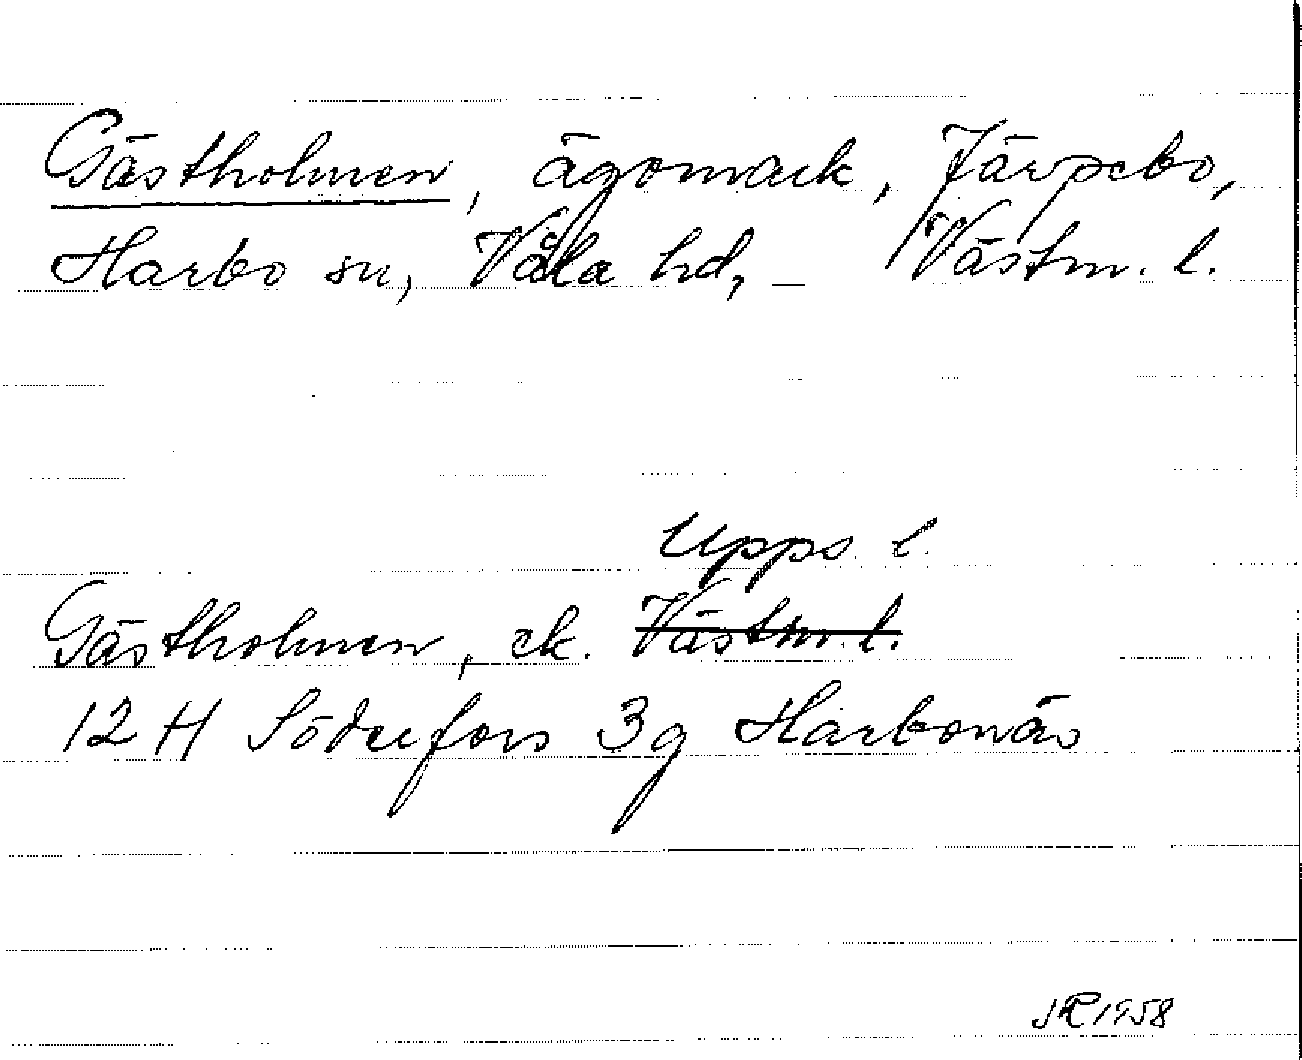 Gästholmen, ägomark, Järpebo,
Harbo sn, Våla hd, – Västm. l.
Upps. l.
Gästholmen, ek. Västm. l.
12 H Söderfors 3g Harbonäs
1958